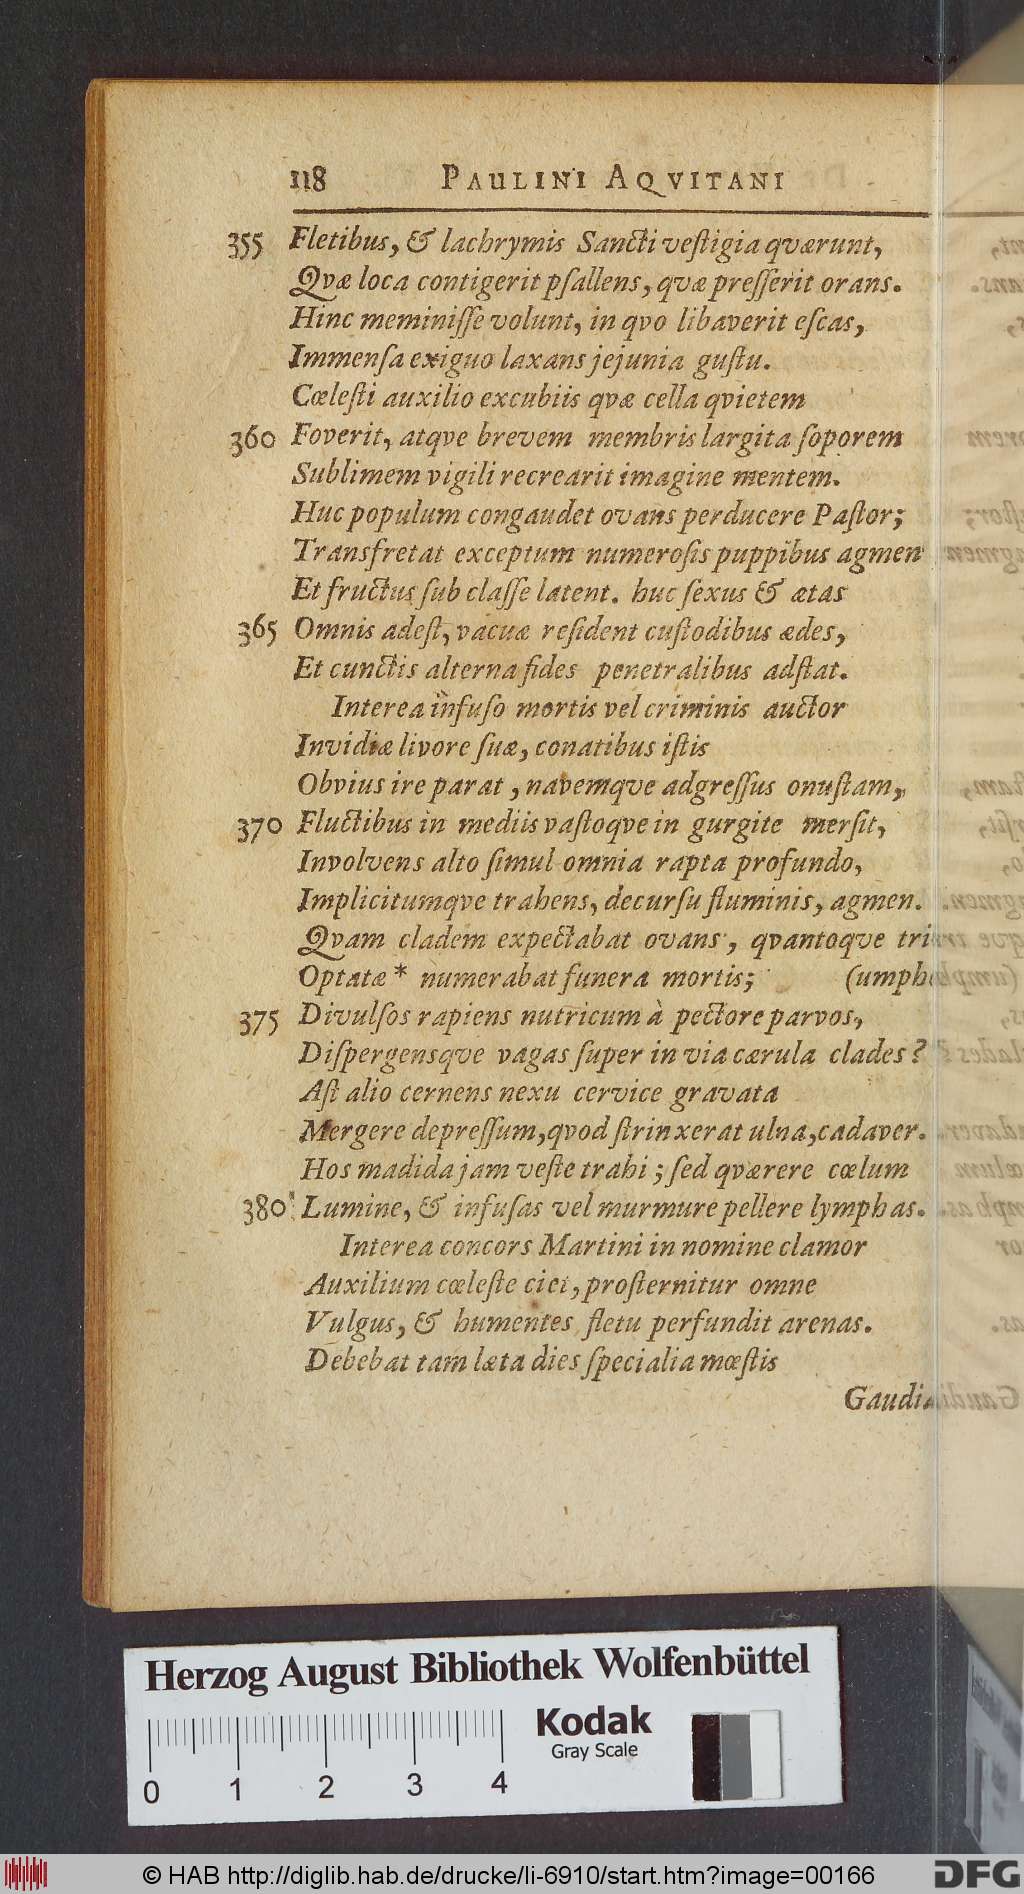 118 PAULINI AQVITANI
355 Fletibus, & lachrymis Sancti veſtigia qværunt,
Qvæ loca contigerit pſallens, qvæ preſſerit orans.
Hinc meminiſſe volunt, in qvo libaverit eſcas,
Immenſa exiguo laxans jejunia guſtu.
Cœleſti auxilio excubiis qvæ cella qvietem
360 Foverit, atqve brevem membris largita ſoporem
Sublimem vigili recrearit imagine mentem.
Huc populum congaudet ovans perducere Paſtor;
Transfretat exceptum numeroſis puppibus agmen
Et fructus ſub claſſe latent. huc ſexus & ætas
365 Omnis adeſt, vacuæ reſident cuſtodibus ædes,
Et cunctis alterna fides penetralibus adſtat.
Interea infuſo mortis vel criminis auctor
Invidiæ livore ſuæ, conatibus iſtis
Obvius ire parat, navemqve adgreſſus onuſtam,
370 Fluctibus in mediis vaſtoqve in gurgite merſit,
Involvens alto ſimul omnia rapta profundo,
Implicitumqve trahens, decurſu fluminis, agmen.
Qvam cladem expectabat ovans, qvantoqve tri-
Optatæ * numerabat funera mortis; (umpho
375 Divulſos rapiens nutricum à pectore parvos,
Diſpergensqve vagas ſuper invia cærula clades?
Aſt alio cernens nexu cervice gravata
Mergere depreſſum, qvod ſtrinxerat ulna, cadaver.
Hos madida jam veſte trahi; ſed qværere cœlum
380 Lumine, & infuſas vel murmure pellere lymphas.
Interea concors Martini in nomine clamor
Auxilium cœleſte ciet, proſternitur omne
Vulgus, & humentes fletu perfundit arenas.
Debebat tam læta dies ſpecialia mœſtis
Gaudia
Herzog August Bibliothek Wolfenbüttel
Kodak
Gray Scale
0 1 2 3 4
© HAB http://diglib.hab.de/drucke/li-6910/start.htm?image=00166
DFG